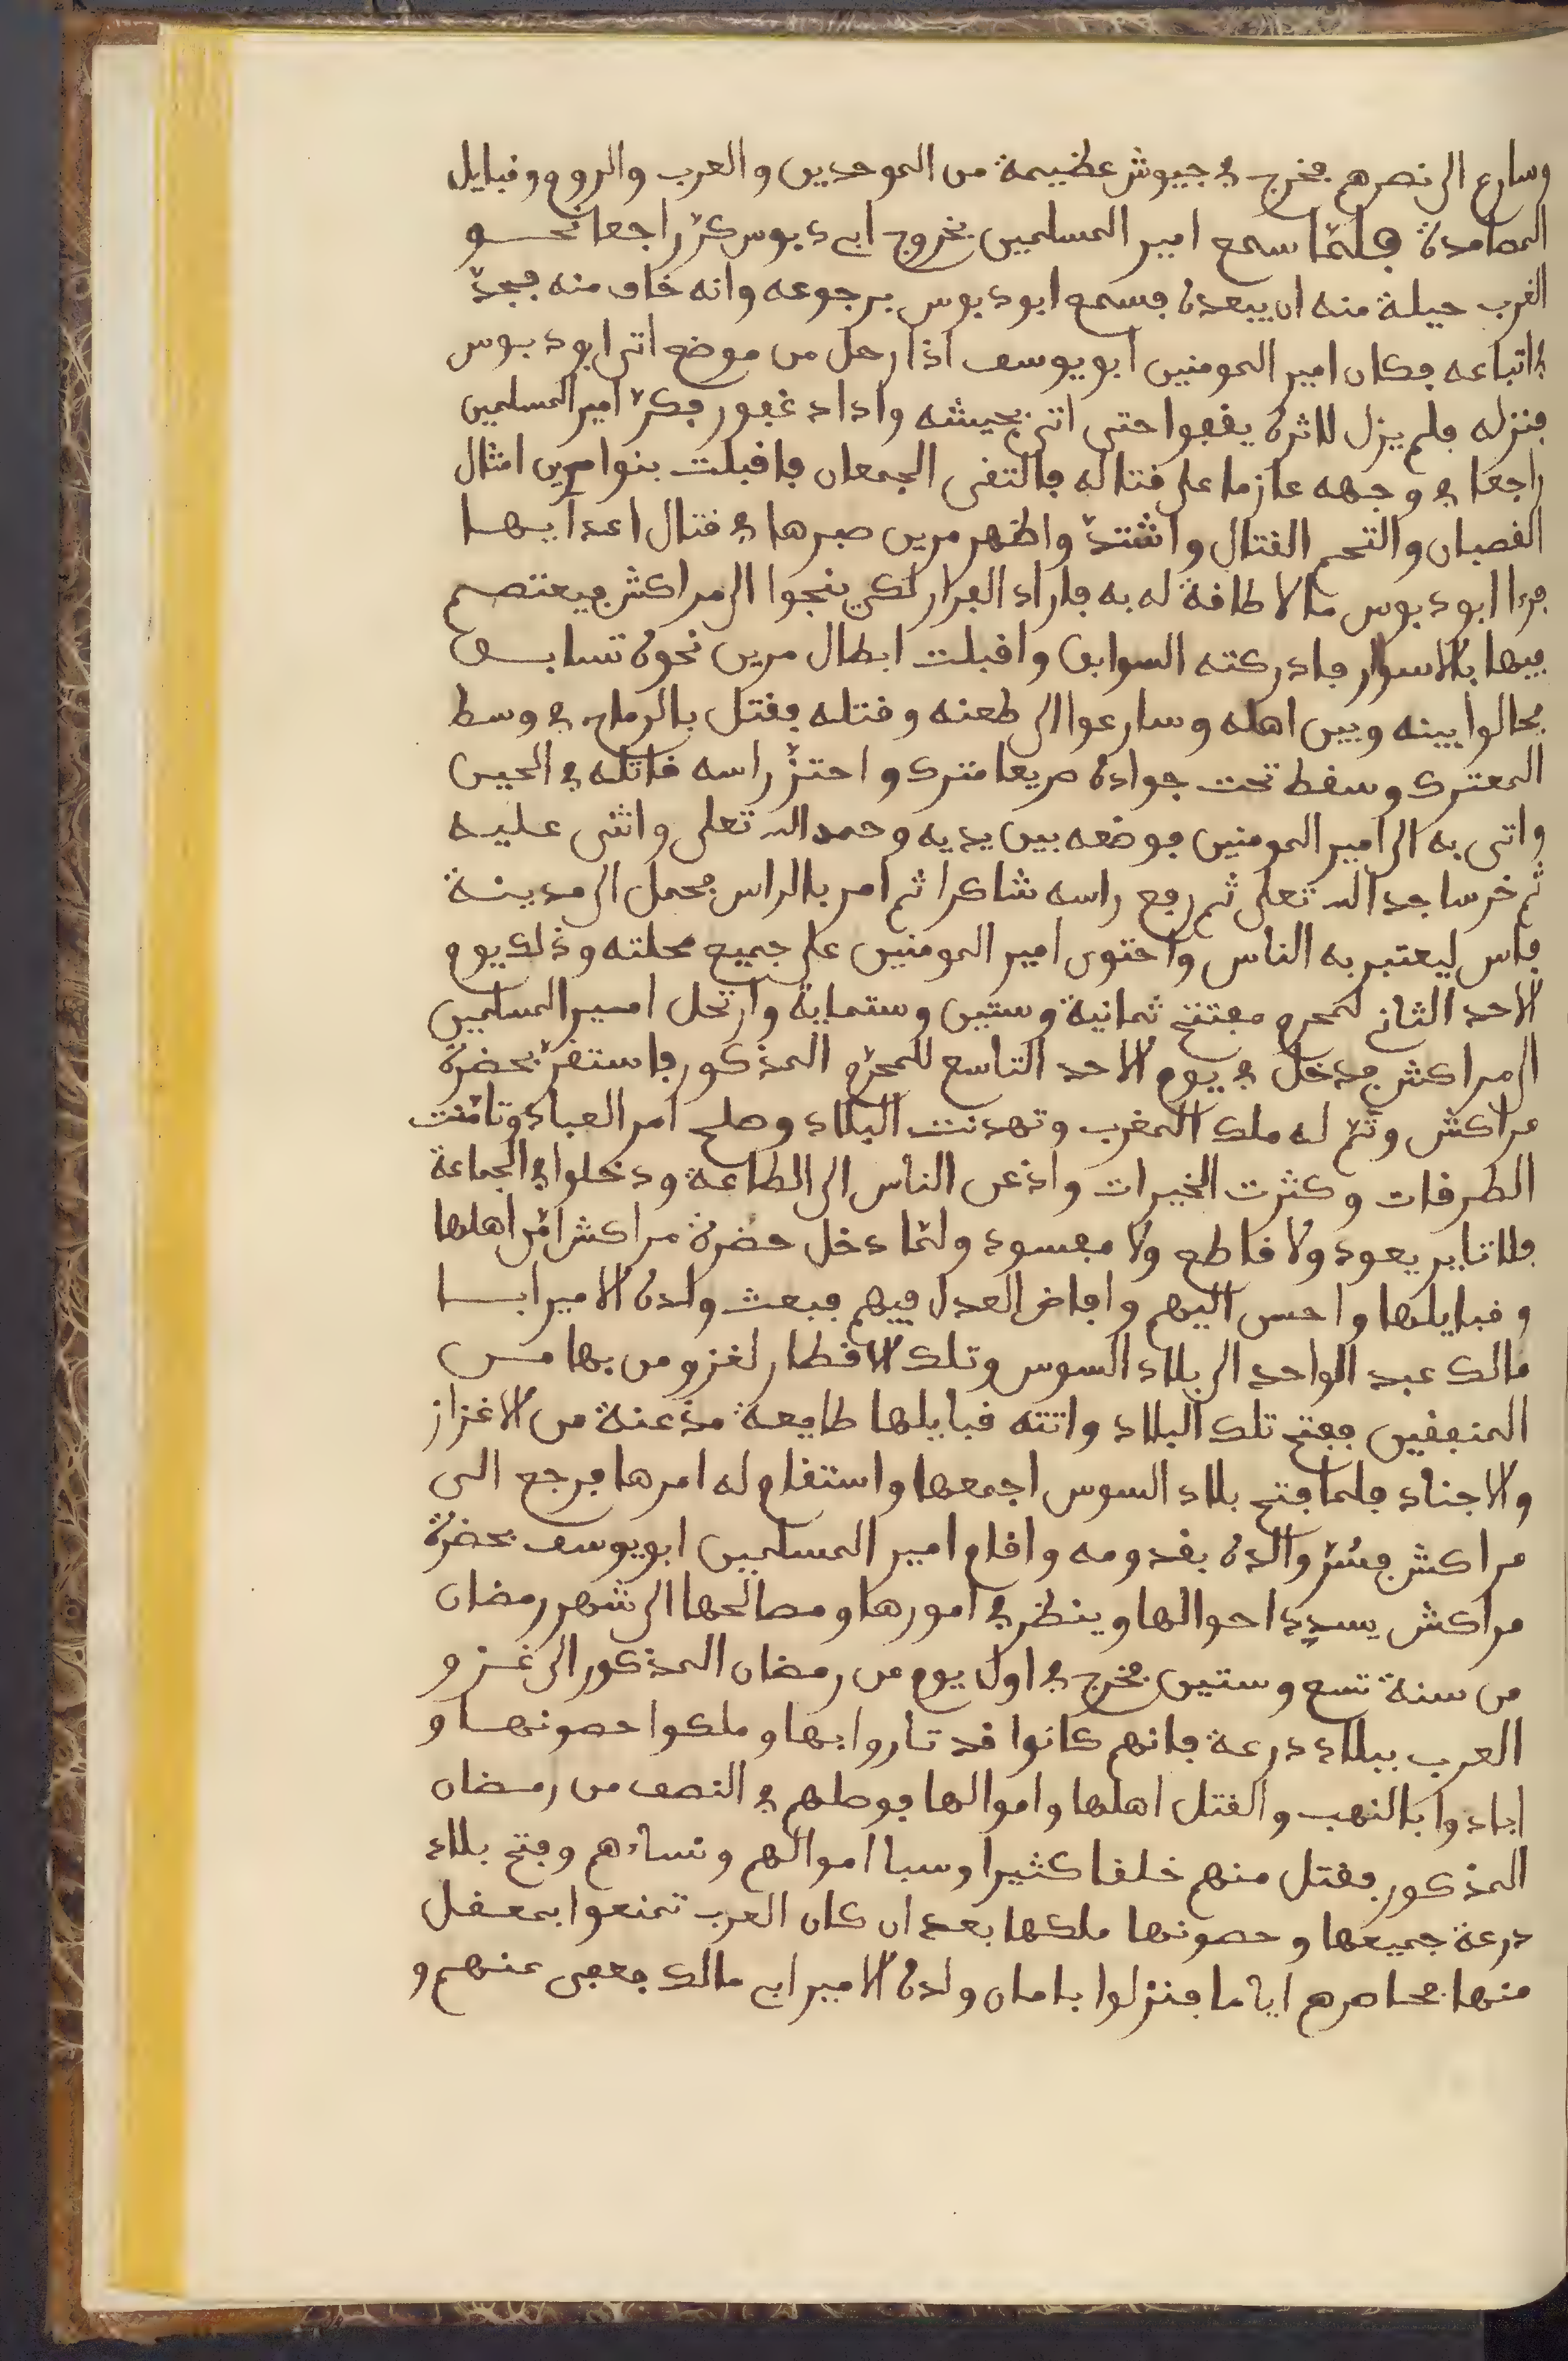 وسارع الى نصرهم فخرج في جيوش عظيمة من الموحدين والعرب والروم وقبايل
المصامدة فلمّا سمع امير المسلمين بخروج ابي دبوس كرّ راجعا نحو
الغرب حيلة منه ان يبعده فسمع ابو دبوس برجوعه وانه خاف منه فجدّ
في اتباعه فكان امير المومنين ابو يوسف اذا رحل من موضع اتى ابو دبوس
فنزله فلم يزل لاثره يقفوا حتى اتى بجيشه واداد غفور فكرّ امير المسلمين
راجعا في وجهه عازما على قتاله فالتقى الجمعان فاقبلت بنوا مرين امثال
القصبان والتحم القتال واشتدّ واظهر مرين صبرها في قتال اعدايها
فرءا ابو دبوس ما لا طاقة له به فاراد الفرار لكي ينجوا الى مراكش فيعتصم
فيها بالاسوار فادركته السوابق واقبلت ابطال مرين نحوه تسابق
فحالوا بينه وبين اهله وسارعوا الى طعنه وقتله فقتل بالرماح في وسط
المعترك وسقط تحت جواده صريعا فترك واحتزّ راسه قاتله في الحين
واتى به الى امير المومنين فوضعه بين يديه وحمد الله تعلى واثنى عليه
ثم خر ساجد الله تعلى ثم رفع راسه شاكرا ثم امر بالراس فحمل الى مدينة
فاس ليعتبر به الناس واحتوى امير المومنين على جميع محلته وذلك يوم
الاحد الثاني لمحرم مفتتح ثمانية وستين وستماية وارتحل امير المسلمين
الى مراكش فدخل في يوم الاحد التاسع للمحرّم المذكور فاستقرّ بحضرة
مراكش وتمّ له ملك المغرب وتهدنت البلاد وصلح امر العباد وتامّنت
الطرقات وكثرت الخيرات واذعن الناس الى الطاعة ودخلوا في الجماعة
فلا ثاير يعود ولا قاطع ولا مفسود ولمّا دخل حضرة مراكش امّن اهلها
وقبايلها واحسن اليهم وافاض العدل فيهم فبعث ولده الامير ابا
مالك عبد الواحد الى بلاد السوس وتلك الاقطار لغزو من بها من
المنفقين ففتح تلك البلاد واتته قبايلها طايعة مذعنة من الاغزاز
والاجناد فلما فتح بلاد السوس اجمعها واستقام له امرها فرجع الى
مراكش فسُرّ والده بقدومه واقام امير المسلمين ابو يوسف بحضرة
مراكش يسدد احوالها وينظر في امورها ومصالحها الى شهر رمضان
من سنة تسع وستين فخرج في اول يوم من رمضان المذكور الى غزو
العرب ببلاد درعة فانهم كانوا قد تاروا بها وملكوا حصونها و
ابادوا بالنهب والقتل اهلها واموالها فوصلهم في النصف من رمضان
المذكور فقتل منهم خلقا كثيرا وسبا اموالهم ونساءهم وفتح بلاد
درعة جميعها وحصونها ملكها بعد ان كان العرب تمنعوا بمعقل
منها فحاصرهم اياما فنزلوا بامان ولده الامير ابي مالك فعفى عنهم و